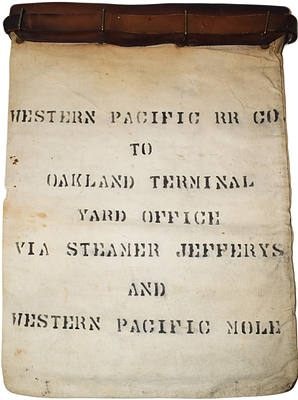 WESTERN PACIFIC RR CO.
TO
OAKLAND TERMINAL
YARD OFFICE
VIA STEAMER JEFFERYS
AND
WESTERN PACIFIC MOLE